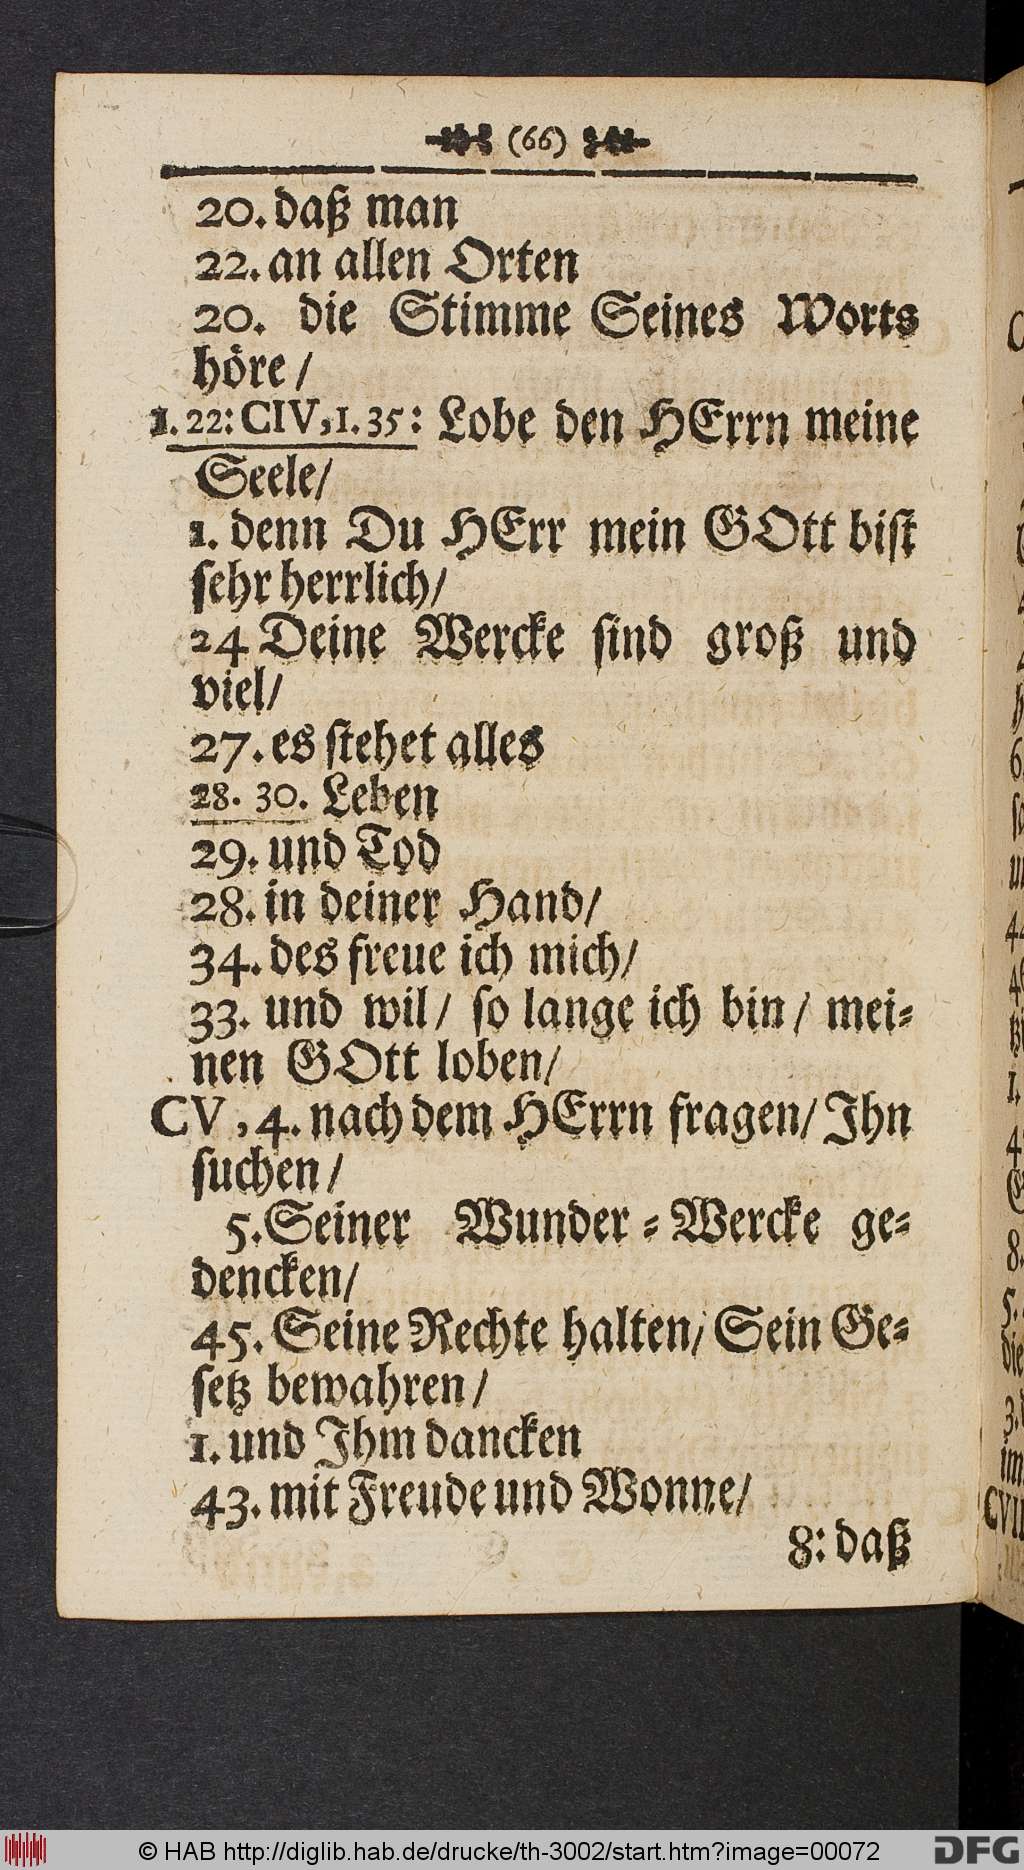 (66)
20. daß man
22. an allen Orten
20. die Stimme Seines Worts
höre /
1. 22: CIV, 1. 35: Lobe den HErrn meine
Seele/
1. denn Du HErr mein GOtt bist
sehr herrlich/
24 Deine Wercke sind groß und
viel/
27. es stehet alles
28. 30. Leben
29. und Tod
28. in deiner Hand/
34. des freue ich mich/
33. und wil/ so lange ich bin/ mei-
nen GOtt loben/
CV, 4. nach dem HErrn fragen/ Jhn
suchen/
5. Seiner Wunder-Wercke ge-
dencken/
45. Seine Rechte halten/ Sein Ge-
setz bewahren/
1. und Jhm dancken
43. mit Freude und Wonne/
8: daß
© HAB http://diglib.hab.de/drucke/th-3002/start.htm?image=00072
DFG